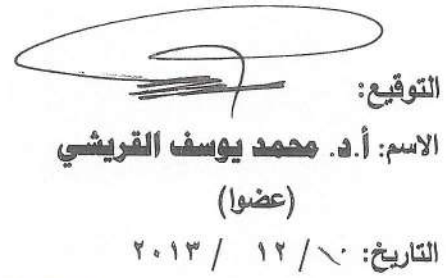 التوقيع:
الاسم: أ.د. محمد يوسف القريشي
(عضوا)
التاريخ: ١٠ / ١٢ / ٢٠١٣